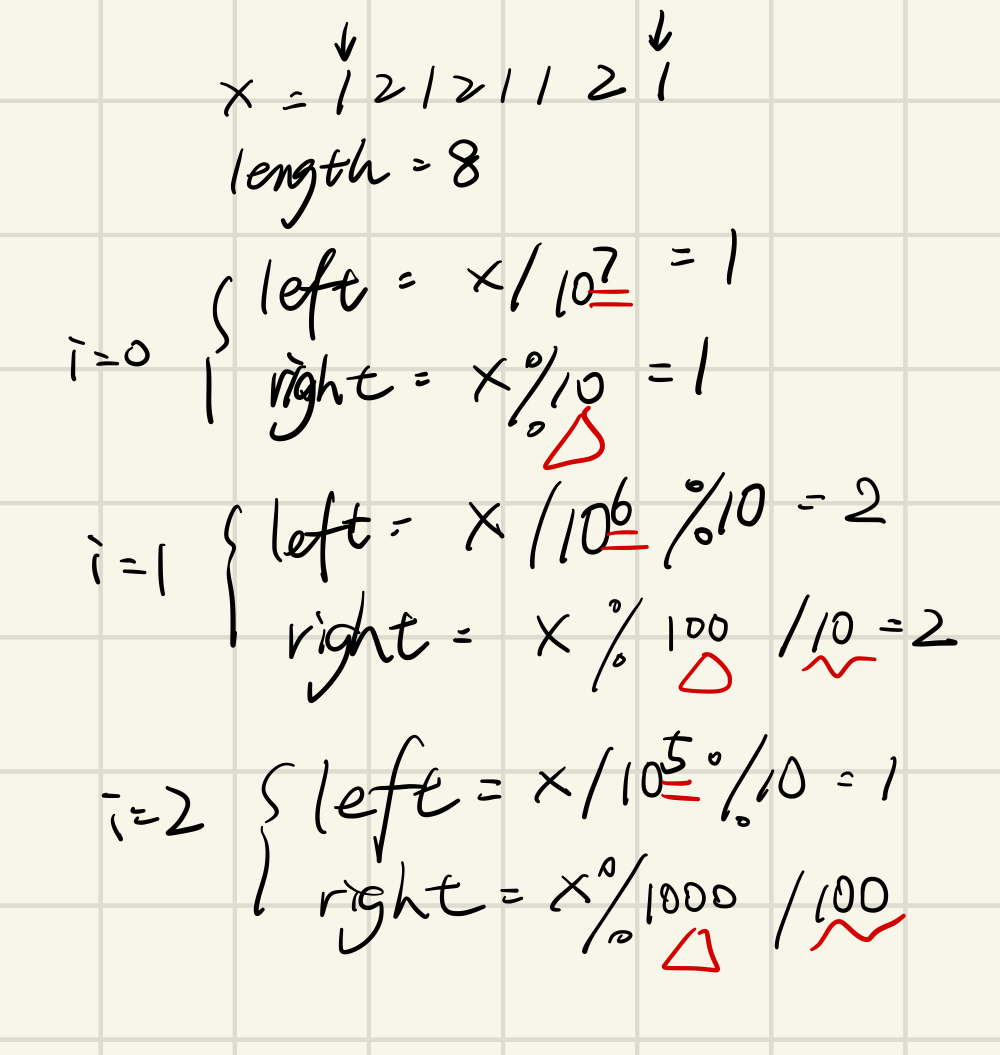 x = 12121121
length = 8
left = x / 10⁷ = 1
i=0
right = x % 10 = 1
left = x / 10⁶ % 10 = 2
i=1
right = x % 100 / 10 = 2
left = x / 10⁵ % 10 = 1
i=2
right = x % 1000 / 100